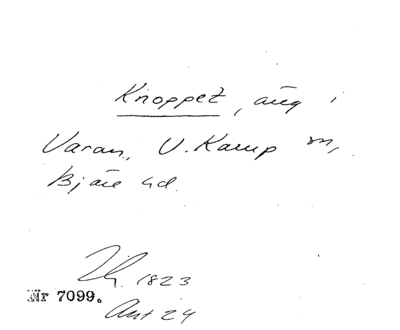 Knoppet, äng i
Varan, V. Karup sn,
Bjäre hd.
1823
Nr 7099.
Ant 24